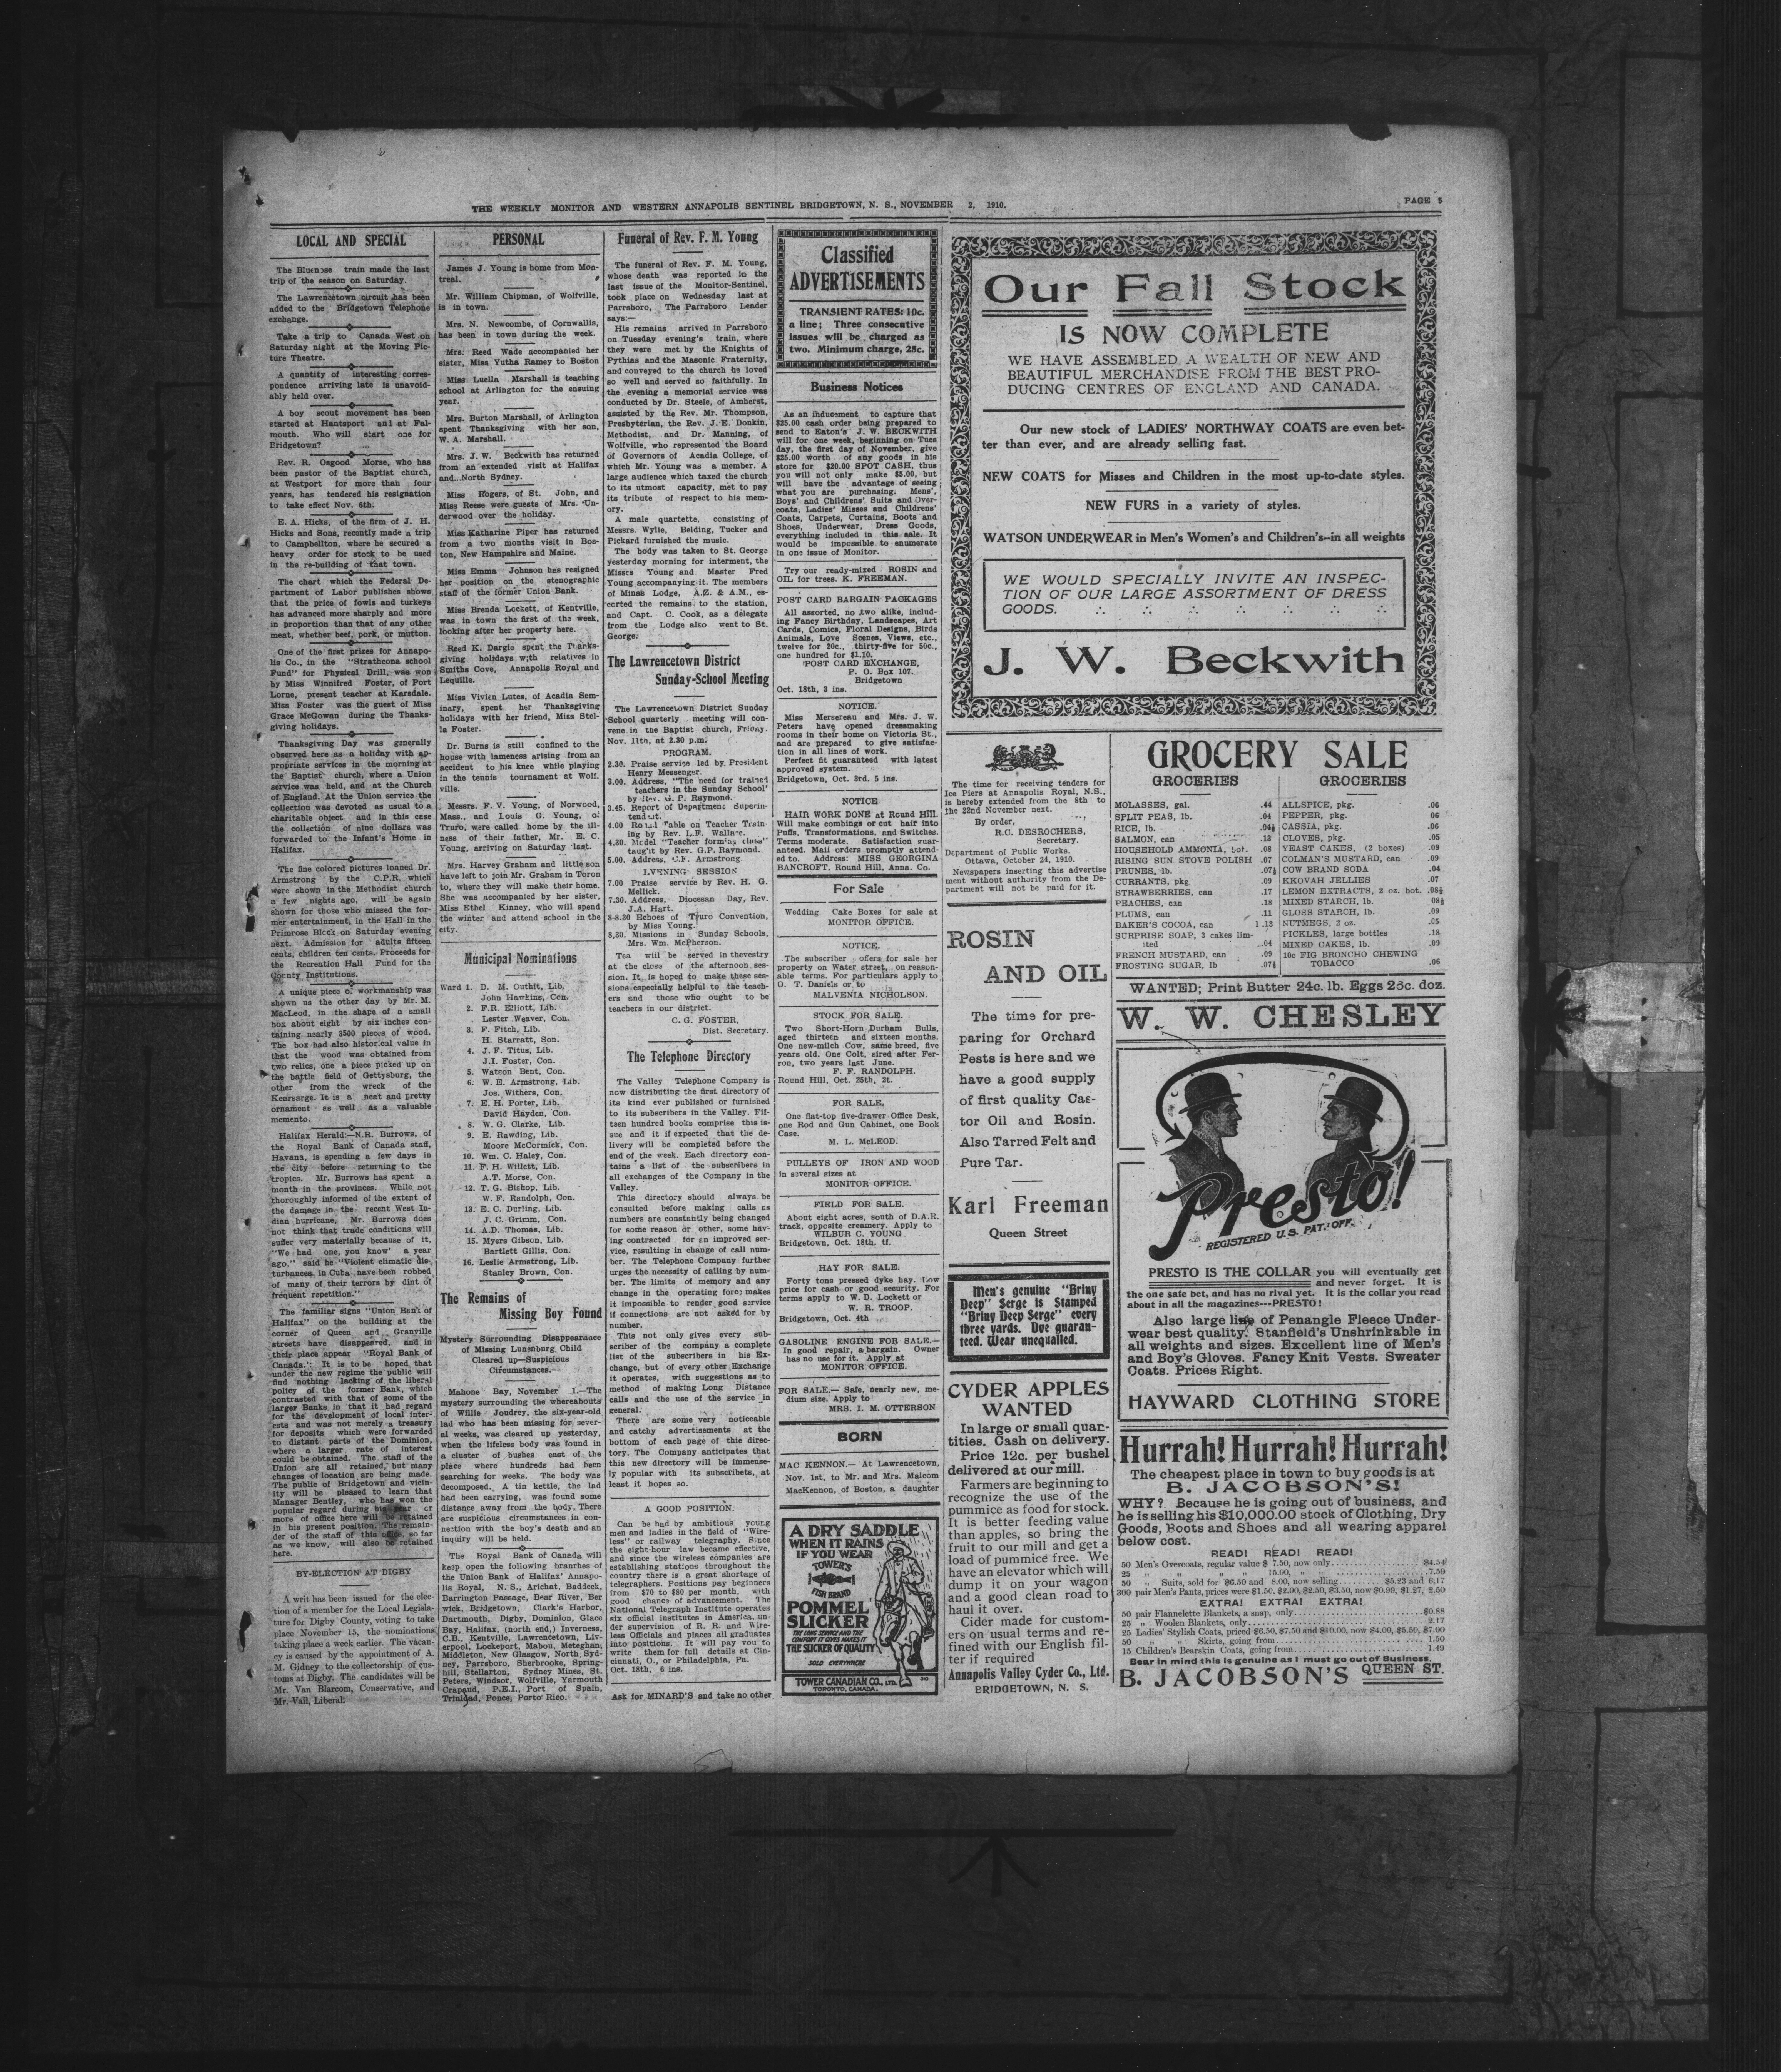 THE WEEKLY MONITOR AND WESTERN ANNAPOLIS SENTINEL BRIDGETOWN, N. S., NOVEMBER 2, 1910.
PAGE 5
LOCAL AND SPECIAL
The Bluenose train made the last
trip of the season on Saturday.
The Lawrencetown circuit has been
added to the Bridgetown Telephone
exchange.
Take a trip to Canada West on
Saturday night at the Moving Pic-
ture Theatre.
A quantity of interesting corres-
pondence arriving late is unavoid-
ably held over.
A boy scout movement has been
started at Hantsport and at Fal-
mouth. Who will start one for
Bridgetown?
Rev. R. Osgood Morse, who has
been pastor of the Baptist church,
at Westport for more than four
years, has tendered his resignation
to take effect Nov. 6th.
E. A. Hicks, of the firm of J. H.
Hicks and Sons, recently made a trip
to Campbellton, where he secured a
heavy order for stock to be used
in the re-building of that town.
The chart which the Federal De-
partment of Labor publishes shows
that the price of fowls and turkeys
has advanced more sharply and more
in proportion than that of any other
meat, whether beef, pork, or mutton.
One of the first prizes for Annapo-
lis Co., in the "Strathcona school
Fund" for Physical Drill, was won
by Miss Winnifred Foster, of Port
Lorne, present teacher at Karsdale.
Miss Foster was the guest of Miss
Grace McGowan during the Thanks-
giving holidays.
Thanksgiving Day was generally
observed here as a holiday with ap-
propriate services in the morning at
the Baptist church, where a Union
service was held, and at the Church
of England. At the Union service the
collection was devoted as usual to a
charitable object and in this case
the collection of nine dollars was
forwarded to the Infant's Home in
Halifax.
The fine colored pictures loaned Dr.
Armstrong by the C.P.R. which
were shown in the Methodist church
a few nights ago, will be again
shown for those who missed the for-
mer entertainment, in the Hall in the
Primrose Block on Saturday evening
next. Admission for adults fifteen
cents, children ten cents. Proceeds for
the Recreation Hall Fund for the
County Institutions.
A unique piece of workmanship was
shown us the other day by Mr. M.
MacLeod, in the shape of a small
box about eight by six inches con-
taining nearly 3500 pieces of wood.
The box had also historical value in
that the wood was obtained from
two relics, one a piece picked up on
the battle field of Gettysburg, the
other from the wreck of the
Kearsarge. It is a neat and pretty
ornament as well as a valuable
memento.
Halifax Herald:—N.R. Burrows, of
the Royal Bank of Canada staff,
Havana, is spending a few days in
the city before returning to the
tropics. Mr. Burrows has spent a
month in the provinces. While not
thoroughly informed of the extent of
the damage in the recent West In-
dian hurricane, Mr. Burrows does
not think that trade conditions will
suffer very materially because of it.
"We had one, you know' a year
ago," said he "Violent climatic dis-
turbances in Cuba have been robbed
of many of their terrors by dint of
frequent repetition."
The familiar signs "Union Bank of
Halifax" on the building at the
corner of Queen and Granville
streets have disappeared, and in
their place appear "Royal Bank of
Canada." It is to be hoped that
under the new regime the public will
find nothing lacking of the liberal
policy of the former Bank, which
contrasted with that of some of the
larger Banks in that it had regard
for the development of local inter-
ests and was not merely a treasury
for deposits which were forwarded
to distant parts of the Dominion,
where a larger rate of interest
could be obtained. The staff of the
Union are all retained, but many
changes of location are being made.
The public of Bridgetown and vicin-
ity will be pleased to learn that
Manager Bentley, who has won the
popular regard during his year or
more of office here will be retained
in his present position. The remain-
der of the staff of this office, so far
as we know, will also be retained
here.
BY-ELECTION AT DIGBY
A writ has been issued for the elec-
tion of a member for the Local Legisla-
ture for Digby County, voting to take
place November 15, the nominations
taking place a week earlier. The vacan-
cy is caused by the appointment of A.
M. Gidney to the collectorship of cus-
toms at Digby. The candidates will be
Mr. Van Blarcom, Conservative, and
Mr. Vail, Liberal.
PERSONAL
James J. Young is home from Mon-
treal.
Mr. William Chipman, of Wolfville,
is in town.
Mrs. N. Newcombe, of Cornwallis,
has been in town during the week.
Mrs. Reed Wade accompanied her
sister, Miss Yutha Ramey to Boston
Miss Luella Marshall is teaching
school at Arlington for the ensuing
year.
Mrs. Burton Marshall, of Arlington
spent Thanksgiving with her son,
W. A. Marshall.
Mrs. J. W. Beckwith has returned
from an extended visit at Halifax
and North Sydney.
Miss Rogers, of St. John, and
Miss Reese were guests of Mrs. Un-
derwood over the holiday.
Miss Katharine Piper has returned
from a two months visit in Bos-
ton, New Hampshire and Maine.
Miss Emma Johnson has resigned
her position on the stenographic
staff of the former Union Bank.
Miss Brenda Lockett, of Kentville,
was in town the first of the week,
looking after her property here.
Reed K. Dargie spent the Thanks-
giving holidays with relatives in
Smiths Cove, Annapolis Royal and
Lequille.
Miss Vivien Lutes, of Acadia Sem-
inary, spent her Thanksgiving
holidays with her friend, Miss Stel-
la Foster.
Dr. Burns is still confined to the
house with lameness arising from an
accident to his knee while playing
in the tennis tournament at Wolf-
ville.
Messrs. F. V. Young, of Norwood,
Mass., and Louis G. Young, of
Truro, were called home by the ill-
ness of their father, Mr. E. C.
Young, arriving on Saturday last.
Mrs. Harvey Graham and little son
have left to join Mr. Graham in Toron
to, where they will make their home.
She was accompanied by her sister,
Miss Ethel Kinney, who will spend
the winter and attend school in the
city.
Municipal Nominations
Ward 1. D. M. Outhit, Lib.
John Hawkins, Con.
2. F.R. Elliott, Lib.
Lester Weaver, Con.
3. F. Fitch, Lib.
H. Starratt, Son.
4. J. F. Titus, Lib.
J.I. Foster, Con.
5. Watson Bent, Con.
6. W. E. Armstrong, Lib.
Jos. Withers, Con.
7. E. H. Porter, Lib.
David Hayden, Con.
8. W. G. Clarke, Lib.
9. E. Rawding, Lib.
Moore McCormick, Con.
10. Wm. C. Haley, Con.
11. F. H. Willett, Lib.
A.T. Morse, Con.
12. T. G. Bishop, Lib.
W. F. Randolph, Con.
13. E. C. Durling, Lib.
J. C. Grimm, Con.
14. A.D. Thomas, Lib.
15. Myers Gibson, Lib.
Bartlett Gillis, Con.
16. Leslie Armstrong, Lib.
Stanley Brown, Con.
The Remains of
Missing Boy Found
Mystery Surrounding Disappearance
of Missing Lunenburg Child
Cleared up—Suspicious
Circumstances.
Mahone Bay, November 1.—The
mystery surrounding the whereabouts
of Willie Joudrey, the six-year-old
lad who has been missing for sever-
al weeks, was cleared up yesterday,
when the lifeless body was found in
a cluster of bushes east of the
place where hundreds had been
searching for weeks. The body was
decomposed. A tin kettle, the lad
had been carrying, was found some
distance away from the body. There
are suspicious circumstances in con-
nection with the boy's death and an
inquiry will be held.
The Royal Bank of Canada will
keep open the following branches of
the Union Bank of Halifax: Annapo-
lis Royal, N. S., Arichat, Baddeck,
Barrington Passage, Bear River, Ber
wick, Bridgetown, Clark's Harbor,
Dartmouth, Digby, Dominion, Glace
Bay, Halifax, (north end,) Inverness,
C.B., Kentville, Lawrencetown, Liv-
erpool, Lockeport, Mabou, Meteghan,
Middleton, New Glasgow, North Syd-
ney, Parrsboro, Sherbrooke, Spring-
hill, Stellarton, Sydney Mines, St.
Peters, Windsor, Wolfville, Yarmouth
Crapaud, P.E.I., Port of Spain,
Trinidad, Ponce, Porto Rico.
Funeral of Rev. F. M. Young
The funeral of Rev. F. M. Young,
whose death was reported in the
last issue of the Monitor-Sentinel,
took place on Wednesday last at
Parrsboro, The Parrsboro Leader
says:—
His remains arrived in Parrsboro
on Tuesday evening's train, where
they were met by the Knights of
Pythias and the Masonic Fraternity,
and conveyed to the church he loved
so well and served so faithfully. In
the evening a memorial service was
conducted by Dr. Steele, of Amherst,
assisted by the Rev. Mr. Thompson,
Presbyterian, the Rev. J. E. Donkin,
Methodist, and Dr. Manning, of
Wolfville, who represented the Board
of Governors of Acadia College, of
which Mr. Young was a member. A
large audience which taxed the church
to its utmost capacity, met to pay
its tribute of respect to his mem-
ory.
A male quartette, consisting of
Messrs. Wylie, Belding, Tucker and
Pickard furnished the music.
The body was taken to St. George
yesterday morning for interment, the
Misses Young and Master Fred
Young accompanying it. The members
of Minas Lodge, A.Z. & A.M., es-
corted the remains to the station,
and Capt. C. Cook, as a delegate
from the Lodge also went to St.
George.
The Lawrencetown District
Sunday-School Meeting
The Lawrencetown District Sunday
School quarterly meeting will con-
vene in the Baptist church, Friday.
Nov. 11th, at 2.30 p.m.
PROGRAM.
2.30. Praise service led by President
Henry Messenger.
3.00. Address, "The need for trained
teachers in the Sunday School'
by Rev. G. P. Raymond.
3.45. Report of Department Superin-
tendent.
4.00 Round Table on Teacher Train
ing by Rev. L.F. Wallace.
4.30. Model "Teacher forming class"
taug't by Rev. G.P. Raymond.
5.00. Address, C.F. Armstrong
EVENING SESSION
7.00 Praise service by Rev. H. G.
Mellick.
7.30. Address, Diocesan Day, Rev.
J.A. Hart.
8-8.30 Echoes of Truro Convention,
by Miss Young.
8.30. Missions in Sunday Schools,
Mrs. Wm. McPherson.
Tea will be served in the vestry
at the close of the afternoon ses-
sion. It is hoped to make these ses-
sions especially helpful to the teach-
ers and those who ought to be
teachers in our district.
C. G. FOSTER,
Dist. Secretary.
The Telephone Directory
The Valley Telephone Company is
now distributing the first directory of
its kind ever published or furnished
to its subscribers in the Valley. Fif-
teen hundred books comprise this is-
sue and it if expected that the de-
livery will be completed before the
end of the week. Each directory con-
tains a list of the subscribers in
all exchanges of the Company in the
Valley.
This directory should always be
consulted before making calls as
numbers are constantly being changed
for some reason or other, some hav-
ing contracted for an improved ser-
vice, resulting in change of call num-
ber. The Telephone Company further
urges the necessity of calling by num-
ber. The limits of memory and any
change in the operating force makes
it impossible to render good service
if connections are not asked for by
number.
This not only gives every sub-
scriber of the company a complete
list of the subscribers in his Ex-
change, but of every other Exchange
it operates, with suggestions as to
method of making Long Distance
calls and the use of the service in
general.
There are some very noticeable
and catchy advertisments at the
bottom of each page of this direc-
tory. The Company anticipates that
this new directory will be immense-
ly popular with its subscribets, at
least it hopes so.
A GOOD POSITION.
Can be had by ambitious young
men and ladies in the field of "Wire-
less" or railway telegraphy. Since
the eight-hour law became effective,
and since the wireless companies are
establishing stations throughout the
country there is a great shortage of
telegraphers. Positions pay beginners
from $70 to $80 per month, with
good chance of advancement. The
National Telegraph Institute operates
six official institutes in America, un-
der supervision of R. R. and Wire-
less Officials and places all graduates
into positions. It will pay you to
write them for full details at Cin-
cinnati, O., or Philadelphia, Pa.
Oct. 18th, 6 ins.
Ask for MINARD'S and take no other
Classified
ADVERTISEMENTS
TRANSIENT RATES: 10c.
a line; Three consecutive
issues will be charged as
two. Minimum charge, 25c.
Business Notices
As an inducement to capture that
$25.00 cash order being prepared to
send to Eaton's J. W. BECKWITH
will for one week, beginning on Tues
day, the first day of November, give
$25.00 worth of any goods in his
store for $20.00 SPOT CASH, thus
you will not only make $5.00, but
will have the advantage of seeing
what you are purchasing. Mens',
Boys' and Childrens' Suits and Over-
coats, Ladies' Misses and Childrens'
Coats, Carpets, Curtains, Boots and
Shoes, Underwear, Dress Goods,
everything included in this sale. It
would be impossible to enumerate
in one issue of Monitor.
Try our ready-mized ROSIN and
OIL for trees. K. FREEMAN.
POST CARD BARGAIN PACKAGES
All assorted, no two alike, includ-
ing Fancy Birthday, Landscapes, Art
Cards, Comics, Floral Designs, Birds
Animals, Love Scenes, Views, etc.,
twelve for 20c., thirty-five for 50c.,
one hundred for $1.10.
POST CARD EXCHANGE,
P. O. Box 107.
Bridgetown
Oct. 18th, 3 ins.
NOTICE.
Miss Mersereau and Mrs. J. W.
Peters have opened dressmaking
rooms in their home on Victoria St.,
and are prepared to give satisfac-
tion in all lines of work.
Perfect fit guaranteed with latest
approved system.
Bridgetown, Oct. 3rd. 5 ins.
NOTICE
HAIR WORK DONE at Round Hill.
Will make combings or cut hair into
Puffs, Transformations, and Switches.
Terms moderate. Satisfaction guar-
anteed. Mail orders promptly attend-
ed to. Address: MISS GEORGINA
BANCROFT, Round Hill, Anna. Co.
For Sale
Wedding Cake Boxes for sale at
MONITOR OFFICE.
NOTICE.
The subscriber offers for sale her
property on Water street, on reason-
able terms. For particulars apply to
O. T. Daniels or to
MALVENIA NICHOLSON.
STOCK FOR SALE.
Two Short-Horn Durham Bulls,
aged thirteen and sixteen months.
One new-milch Cow, same breed, five
years old. One Colt, sired after Fer-
ron, two years last June.
F. F. RANDOLPH.
Round Hill, Oct. 25th, 2t.
FOR SALE.
One flat-top five-drawer Office Desk,
one Rod and Gun Cabinet, one Book
Case.
M. L. McLEOD.
PULLEYS OF IRON AND WOOD
in several sizes at
MONITOR OFFICE.
FIELD FOR SALE.
About eight acres, south of D.A.R.
track, opposite creamery. Apply to
WILBUR C. YOUNG
Bridgetown, Oct. 18th, tf.
HAY FOR SALE.
Forty tons pressed dyke hay. Low
price for cash or good security. For
terms apply to W. D. Lockett or
W. R. TROOP.
Bridgetown, Oct. 4th
GASOLINE ENGINE FOR SALE.—
In good repair, a bargain. Owner
has no use for it. Apply at
MONITOR OFFICE.
FOR SALE.— Safe, nearly new, me-
dium size. Apply to
MRS. I. M. OTTERSON
BORN
MAC KENNON.— At Lawrencetown,
Nov. 1st, to Mr. and Mrs. Malcom
MacKennon, of Boston, a daughter
A DRY SADDLE
WHEN IT RAINS
IF YOU WEAR
TOWER'S
FISH BRAND
POMMEL
SLICKER
THE LONG SERVICE AND THE
COMFORT IT GIVES MAKES IT
THE SLICKER OF QUALITY
SOLD EVERYWHERE
TOWER CANADIAN CO., LTD.
TORONTO, CANADA.
Our Fall Stock
IS NOW COMPLETE
WE HAVE ASSEMBLED A WEALTH OF NEW AND
BEAUTIFUL MERCHANDISE FROM THE BEST PRO-
DUCING CENTRES OF ENGLAND AND CANADA.
Our new stock of LADIES' NORTHWAY COATS are even bet-
ter than ever, and are already selling fast.
NEW COATS for Misses and Children in the most up-to-date styles.
NEW FURS in a variety of styles.
WATSON UNDERWEAR in Men's Women's and Children's--in all weights
WE WOULD SPECIALLY INVITE AN INSPEC-
TION OF OUR LARGE ASSORTMENT OF DRESS
GOODS.
J. W. Beckwith
The time for receiving tenders for
Ice Piers at Annapolis Royal, N.S.,
is hereby extended from the 8th to
the 22nd November next.
By order,
R.C. DESROCHERS,
Secretary.
Department of Public Works.
Ottawa, October 24, 1910.
Newspapers inserting this advertise
ment without authority from the De-
partment will not be paid for it.
ROSIN
AND OIL
The time for pre-
paring for Orchard
Pests is here and we
have a good supply
of first quality Cas-
tor Oil and Rosin.
Also Tarred Felt and
Pure Tar.
Karl Freeman
Queen Street
Men's genuine "Briny
Deep" Serge is Stamped
"Briny Deep Serge" every
three yards. Dye guaran-
teed. Wear unequalled.
CYDER APPLES
WANTED
In large or small quan-
tities. Cash on delivery.
Price 12c. per bushel
delivered at our mill.
Farmers are beginning to
recognize the use of the
pummice as food for stock.
It is better feeding value
than apples, so bring the
fruit to our mill and get a
load of pummice free. We
have an elevator which will
dump it on your wagon
and a good clean road to
haul it over.
Cider made for custom-
ers on usual terms and re-
fined with our English fil-
ter if required
Annapolis Valley Cyder Co., Ltd.
BRIDGETOWN, N. S.
GROCERY SALE
GROCERIES
MOLASSES, gal. .44
SPLIT PEAS, lb. .04
RICE, lb. .04½
SALMON, can .13
HOUSEHOLD AMMONIA, bot. .08
RISING SUN STOVE POLISH .07
PRUNES, lb. .07½
CURRANTS, pkg. .09
STRAWBERRIES, can .17
PEACHES, can .18
PLUMS, can .11
BAKER'S COCOA 1.13
SURPRISE SOAP, 3 cakes lim-
ited .04
FRENCH MUSTARD, can .09
FROSTING SUGAR, lb .07½
GROCERIES
ALLSPICE, pkg. .06
PEPPER, pkg. 06
CASSIA, pkg. .06
CLOVES, pkg. .05
YEAST CAKES, (2 boxes) .09
COLMAN'S MUSTARD, can .09
COW BRAND SODA .04
KKOVAH JELLIES .07
LEMON EXTRACTS, 2 oz. bot. .08½
MIXED STARCH, lb. 08½
GLOSS STARCH, lb. .09
NUTMEGS, 2 oz. .05
PICKLES, large bottles .18
MIXED CAKES, lb. .09
10c FIG BRONCHO CHEWING
TOBACCO .06
WANTED; Print Butter 24c. lb. Eggs 23c. doz.
W. W. CHESLEY
Presto!
REGISTERED U.S. PAT. OFF.
PRESTO IS THE COLLAR you will eventually get
and never forget. It is
the one safe bet, and has no rival yet. It is the collar you read
about in all the magazines---PRESTO!
Also large line of Penangle Fleece Under-
wear best quality. Stanfield's Unshrinkable in
all weights and sizes. Excellent line of Men's
and Boy's Gloves. Fancy Knit Vests. Sweater
Coats. Prices Right.
HAYWARD CLOTHING STORE
Hurrah! Hurrah! Hurrah!
The cheapest place in town to buy goods is at
B. JACOBSON'S!
WHY? Because he is going out of business, and
he is selling his $10,000.00 stock of Clothing, Dry
Goods, Boots and Shoes and all wearing apparel
below cost.
READ! READ! READ!
50 Men's Overcoats, regular value $ 7.50, now only $4.54
25 " " " " 15.00, " " 7.50
50 " Suits, sold for $6.50 and 8.00, now selling $5.23 and 6.17
300 pair Men's Pants, prices were $1.50, $2.00, $2.50, $3.50, now $0.90, $1.27, 2.50
EXTRA! EXTRA! EXTRA!
50 pair Flannelette Blankets, a snap, only $0.88
25 " Woolen Blankets, only 2.17
25 Ladies' Stylish Coats, priced $6.50, $7.50 and $10.00, now $4.00, $5.50, $7.00
50 " " Skirts, going from 1.50
15 Children's Bearskin Coats, going from 1.49
Bear in mind this is genuine as I must go out of Business.
B. JACOBSON'S QUEEN ST.